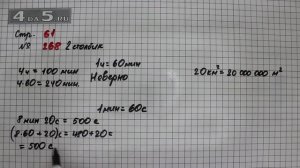 4DS.RU
Стр. 61
№ 268 2 столбик
1ч = 60мин
4ч = 100 мин Неверно
4·60 = 240 мин.
20км² = 20 000 000 м²
1мин = 60с
8мин 20с = 500с
(8·60+20)с = 480+20с
= 500с